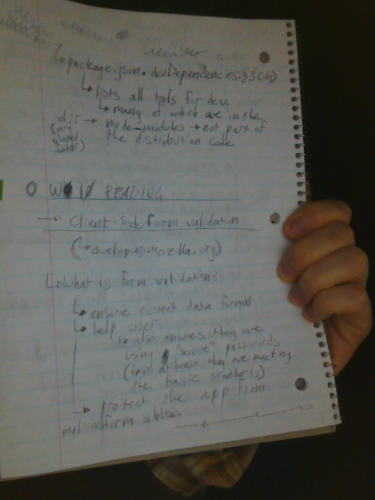 ↳ package.json. devDependencies
↳ lists all tools for dev.
↳ many of which are in the
dir → node-modules → not part of
the distribution code
READING
→ Client-side form validation
(→ developer.mozilla.org)
↳ What is form validation?
↳ ensure correct data format
↳ help users
↳ also ensures they are
using "secure" passwords
(or at least they are meeting
the basic standards)
↳ protect the app from
abuse